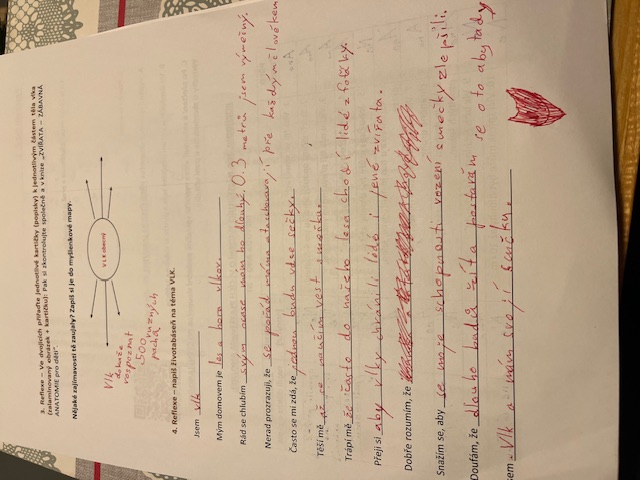 3. Reflexe – Ve dvojicích přiřaďte jednotlivé kartičky (popisky) k jednotlivým částem těla vlka
(zalaminovaný obrázek + kartičku). Pak si zkontrolujte společně a v knize „ZVÍŘATA – ZÁBAVNÁ
ANATOMIE pro děti".
Nějaké zajímavosti tě zaujaly? Zapiš si je do myšlenkové mapy.
VLK OBECNÝ
Vlk
dokáže
rozpoznat
500
různých
pachů
4. Reflexe – napiš životabáseň na téma VLK.
Jsem vlk
Mým domovem je les a hora vlkov.
Rád se chlubím svým ocase mám ho dlouhý 0.3 metrů jsem výmečný.
Nerad prozrazuji, že se pořád i pře každým člověkem
Často se mi zdá, že jednou budu vůse sečky.
Těší mě až se naučím vést smečku.
Trápí mě že často do našeho lesa chodí lidé z fotěky.
Přeji si aby vlky chránili lidé i jené zvířata.
Dobře rozumím, že
Snažím se, aby se moje schopnosti vození smečky zlepšili.
Doufám, že dlouho budu žíta postarám se oto aby tady
sem Vlk a mám svojí smečku.